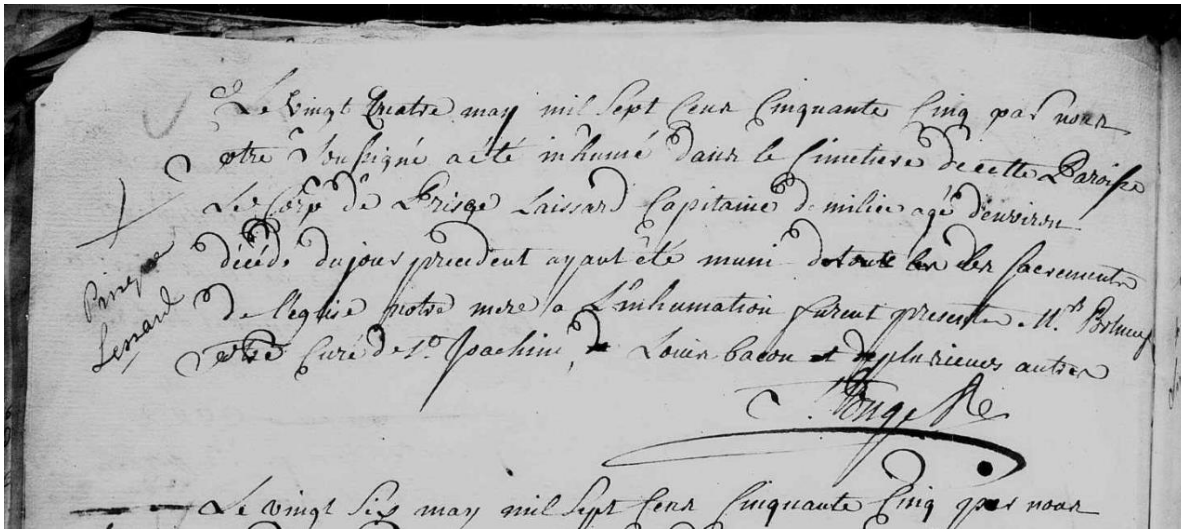 Le vingt quatre may mil sept cens Cinquante Cinq par nous
ptre soussigné a été inhumé dans le Cimetiere de cette Paroisse
Le Corps de Prisque Laissard Capitaine de milice agé d'environ
décédé du jour precedent ayant été muni de toute les des sacrements
de l'eglise notre mere a L'inhumation furent presents Mrs
ptre Curé de St. Joachim, de Louis bacon et de plusieurs autres
Prisque
Lessard
Le vingt Six may mil Sept Cens Cinquante Cinq par nous